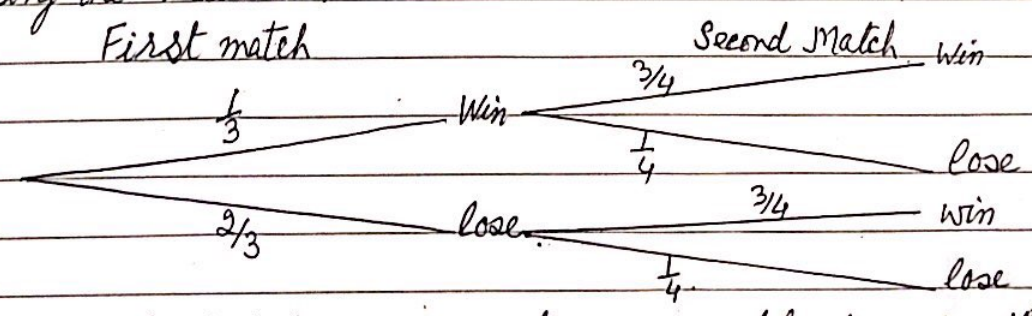 First match Second Match
1/3 Win 3/4 Win
1/4 lose
2/3 lose 3/4 win
1/4 lose